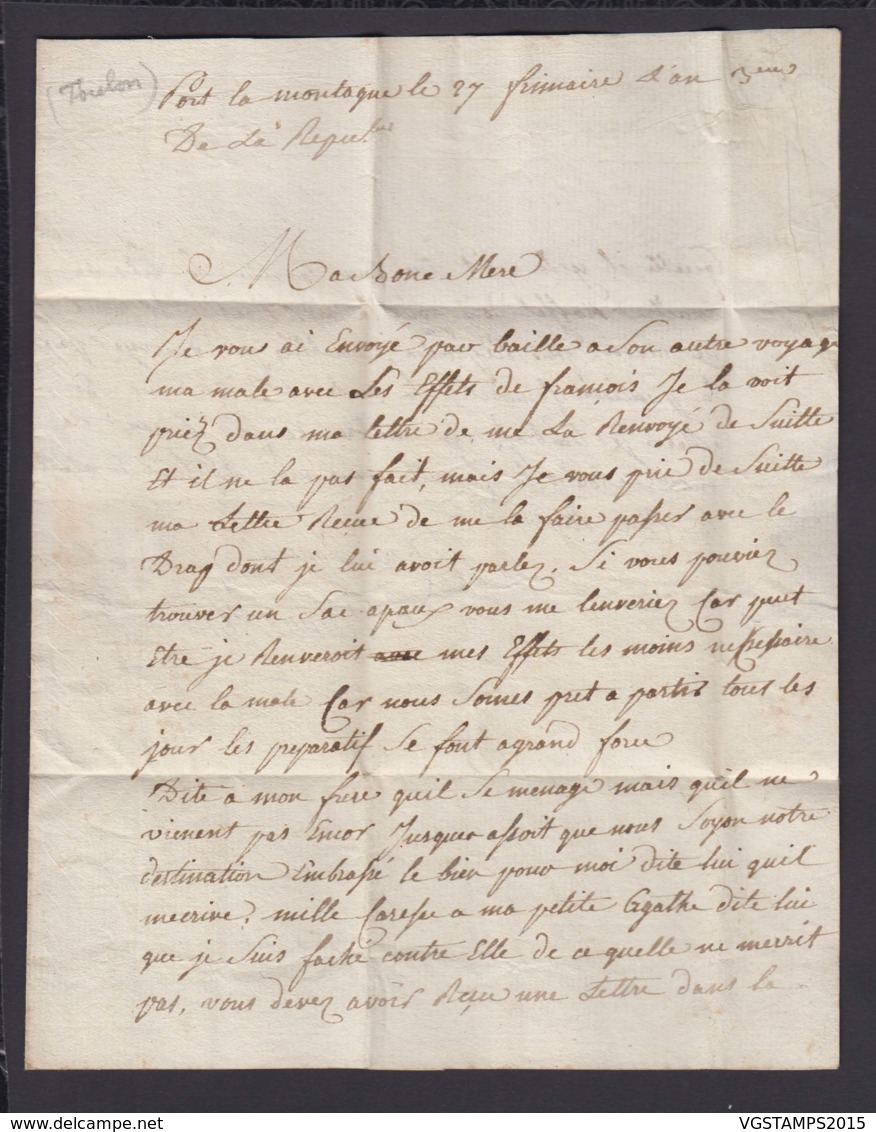 (Toulon)
Port la montagne le 27 frimaire l'an 3eme
De La Repu.bue
Ma Bone Mere
Je vous ai Envoyé par baille a Son autre voyage
ma male avec Les Effets de francois Je la voit
priéz dans ma lettre de me La Renvoyé de Suitte
Et il ne la pas fait, mais Je vous prie de Suitte
ma Lettre Recue de me la faire passer avec le
Drap dont je lui avoit parlez. Si vous pouviez
trouver un Sac apaux vous me lenveriez Car peut
Etre je Renveroit avec mes Effets les moins nessessaire
avec la male Car nous Somes pret a partir tous les
jour les preparatif Se font agrand force
Dite a mon frere quil Se menage mais quil ne
vienent pas Encor Jusques assoit que nous Soyon notre
destination Embrassé le bien pour moi dite lui quil
mecrive, mille Caresse a ma petite Agathe dite lui
que je Suis faché contre Elle de ce quelle ne mecrit
pas, vous devez avoir Reçue une Lettre dans la
VGSTAMPS2015